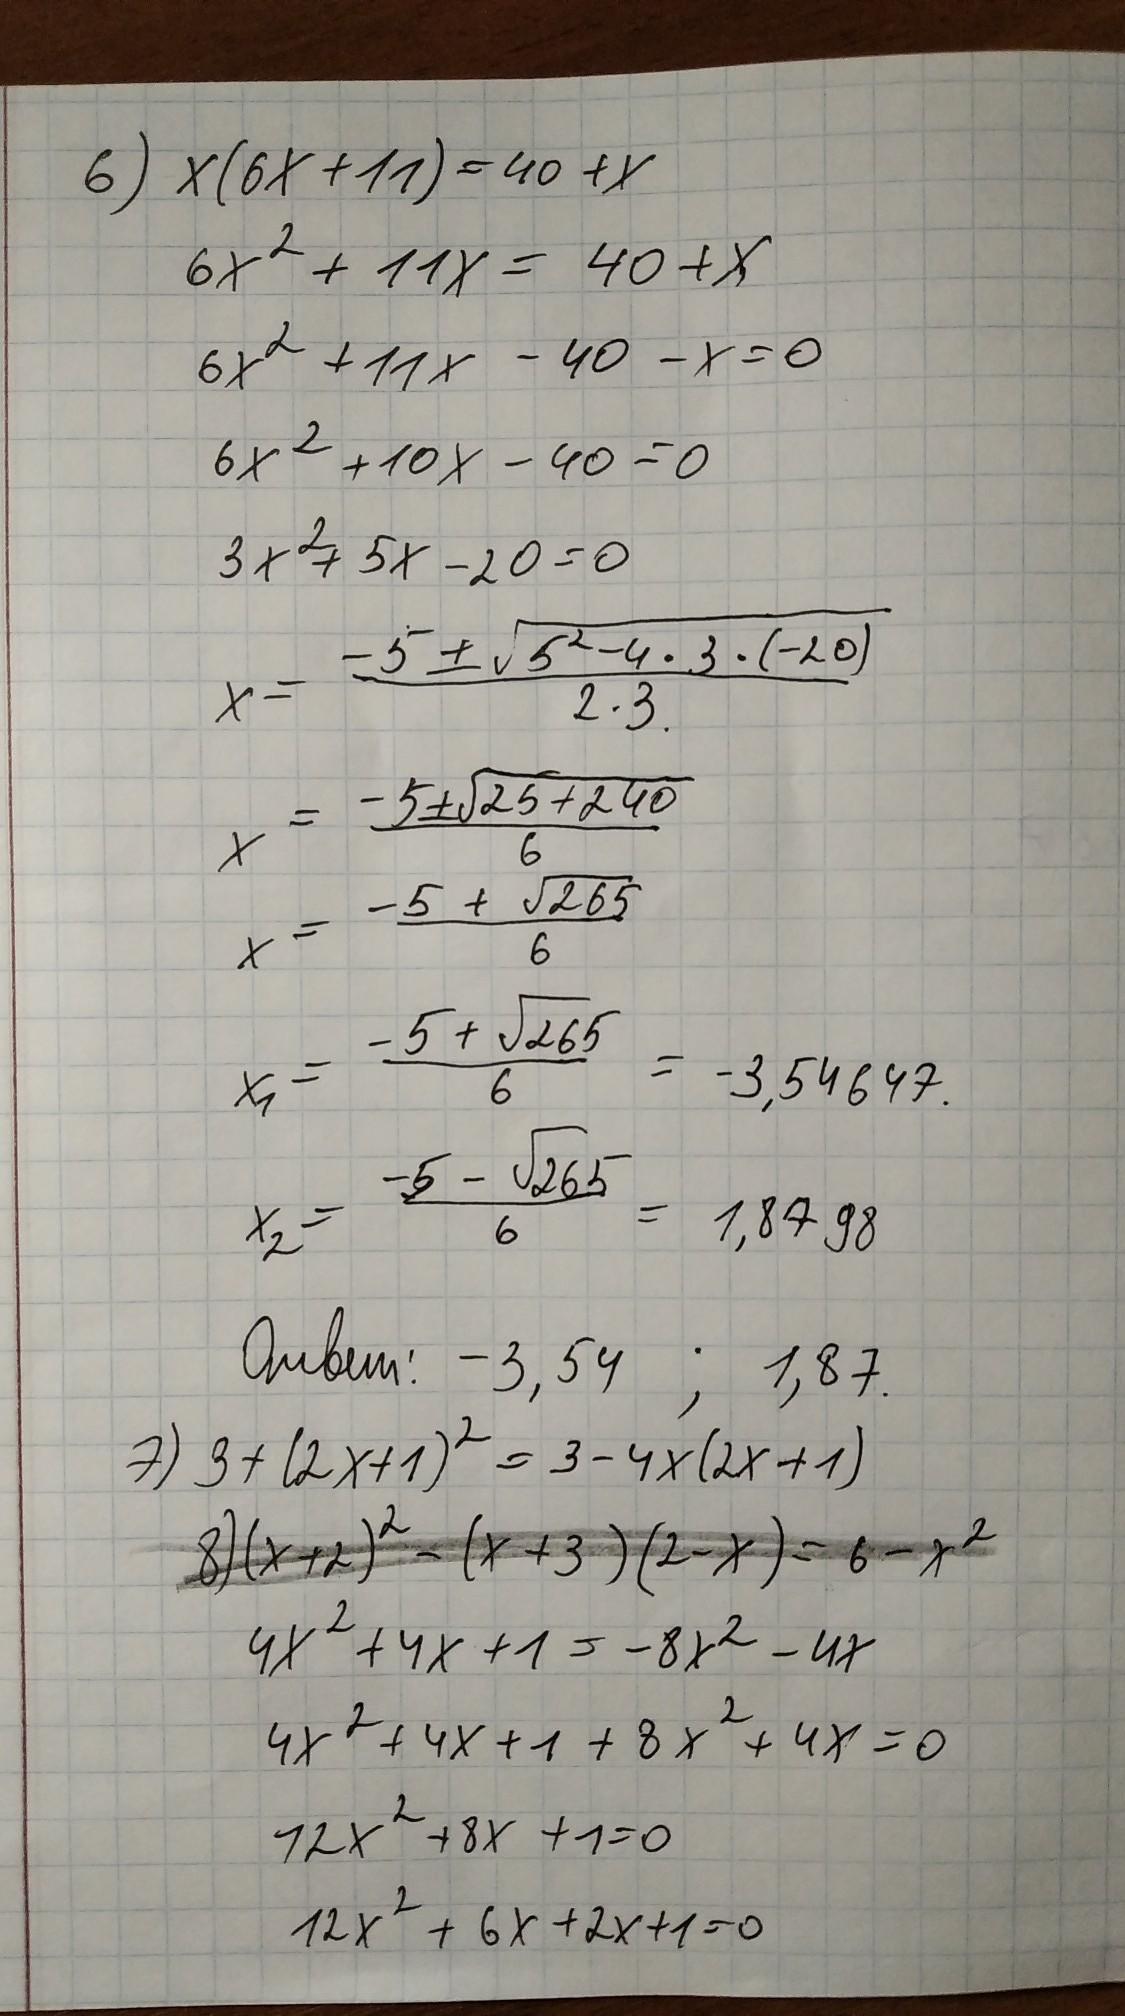 6) x(6x+11)=40+x
6x² + 11x = 40 + x
6x² + 11x - 40 - x = 0
6x² + 10x - 40 = 0
3x² + 5x - 20 = 0
x = (-5 ± √(5² - 4 · 3 · (-20))) / (2 · 3.)
x = (-5 ± √(25 + 240)) / 6
x = (-5 + √265) / 6
x₁ = (-5 + √265) / 6 = -3,54647.
x₂ = (-5 - √265) / 6 = 1,8798
Ответ: -3,54 ; 1,87.
7) 3+(2x+1)² = 3-4x(2x+1)
8) (x+2)² - (x+3)(2-x) = 6-x²
4x² + 4x + 1 = -8x² - 4x
4x² + 4x + 1 + 8x² + 4x = 0
12x² + 8x + 1 = 0
12x² + 6x + 2x + 1 = 0